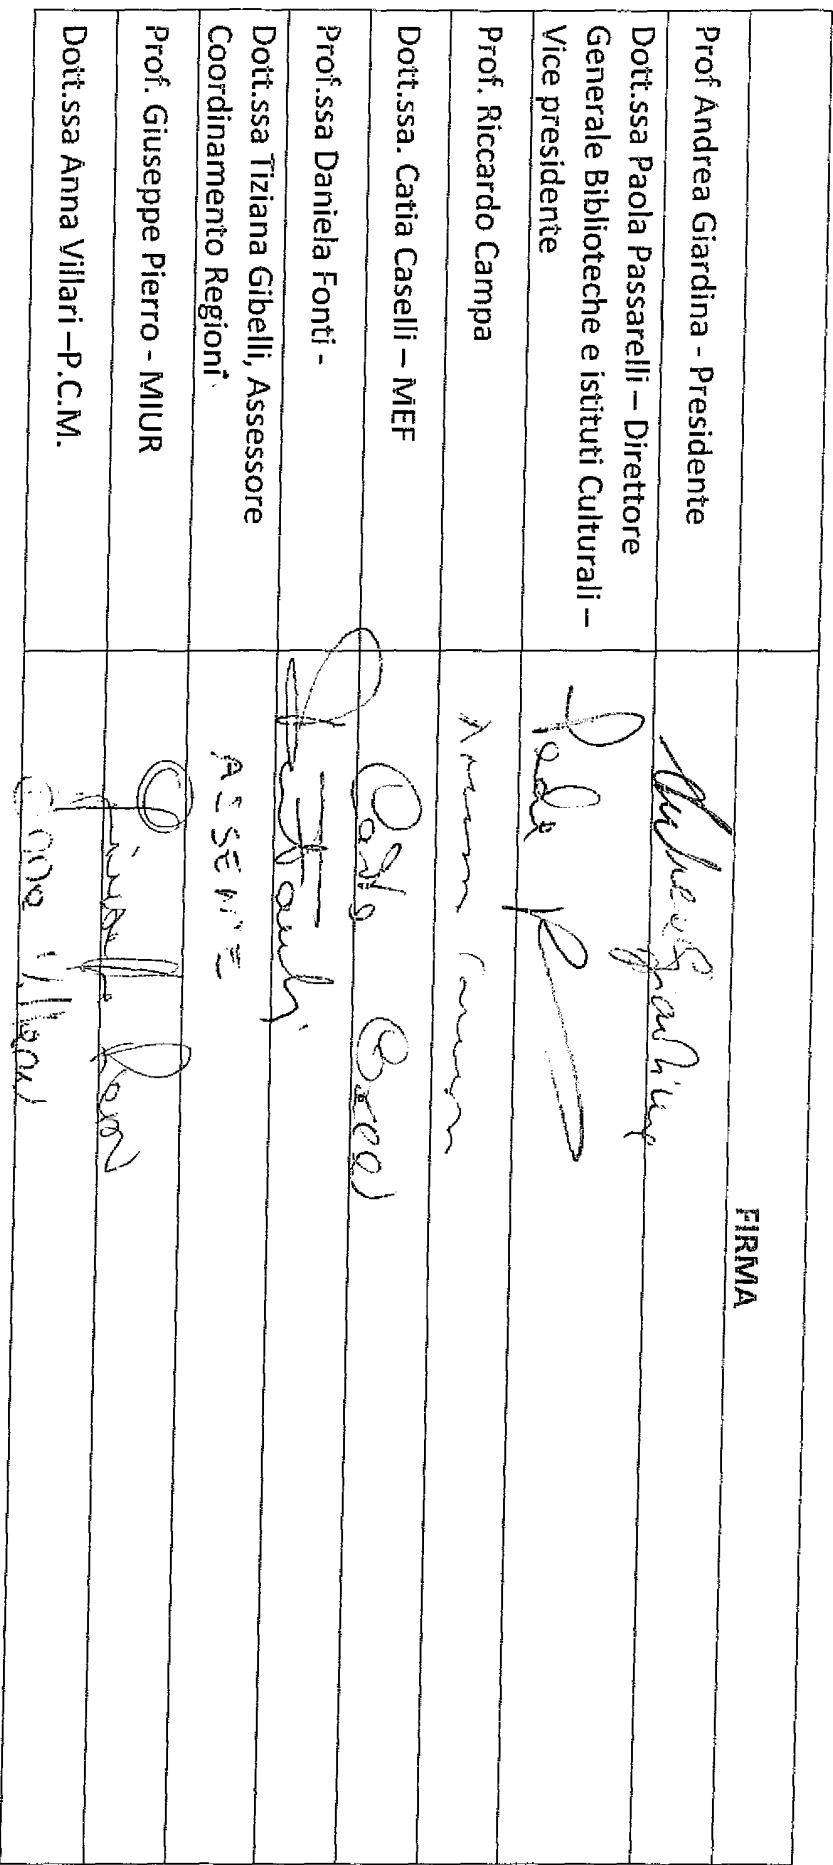 FIRMA
Prof Andrea Giardina - Presidente
Dott.ssa Paola Passarelli – Direttore
Generale Biblioteche e istituti Culturali –
Vice presidente
Prof. Riccardo Campa
Dott.ssa. Catia Caselli – MEF
Prof.ssa Daniela Fonti -
Dott.ssa Tiziana Gibelli, Assessore
Coordinamento Regioni
ASSENTE
Prof. Giuseppe Pierro - MIUR
Dott.ssa Anna Villari –P.C.M.
Anna Villari